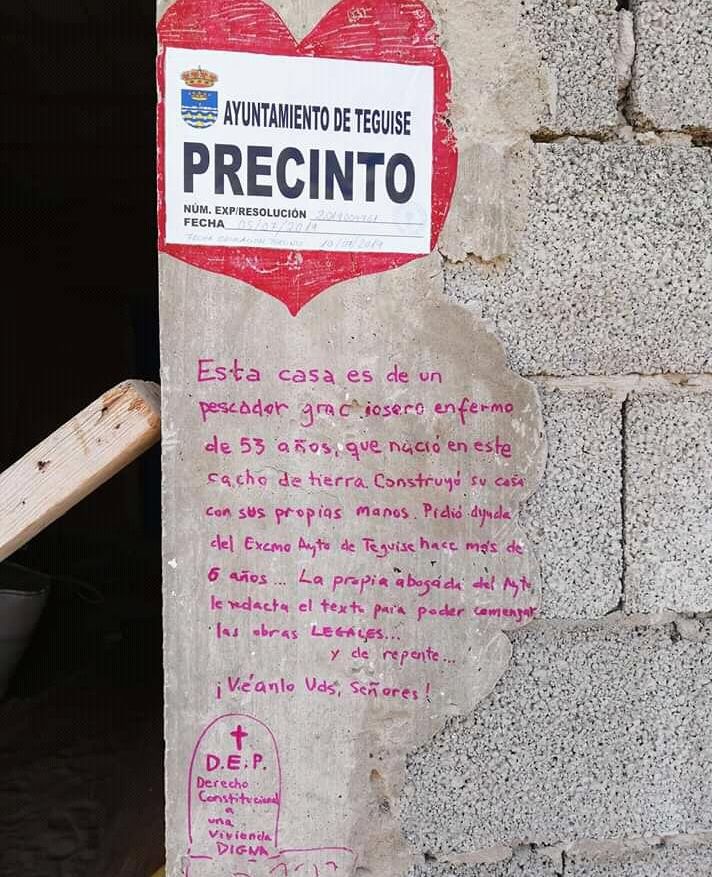 AYUNTAMIENTO DE TEGUISE
PRECINTO
NÚM. EXP/RESOLUCIÓN 2019004961
FECHA 05/07/2019
10/07/2019
Esta casa es de un
pescador graciosero enfermo
de 53 años, que nació en este
cacho de tierra. Construyó su casa
con sus propias manos. Pidió ayuda
del Excmo Ayto de Teguise hace más de
6 años... La propia abogada del Ayto
le redacta el texto para poder comenzar
las obras LEGALES...
y de repente...
¡Véanlo Uds, señores!
D.E.P.
Derecho
Constitucional
a
una
vivienda
DIGNA